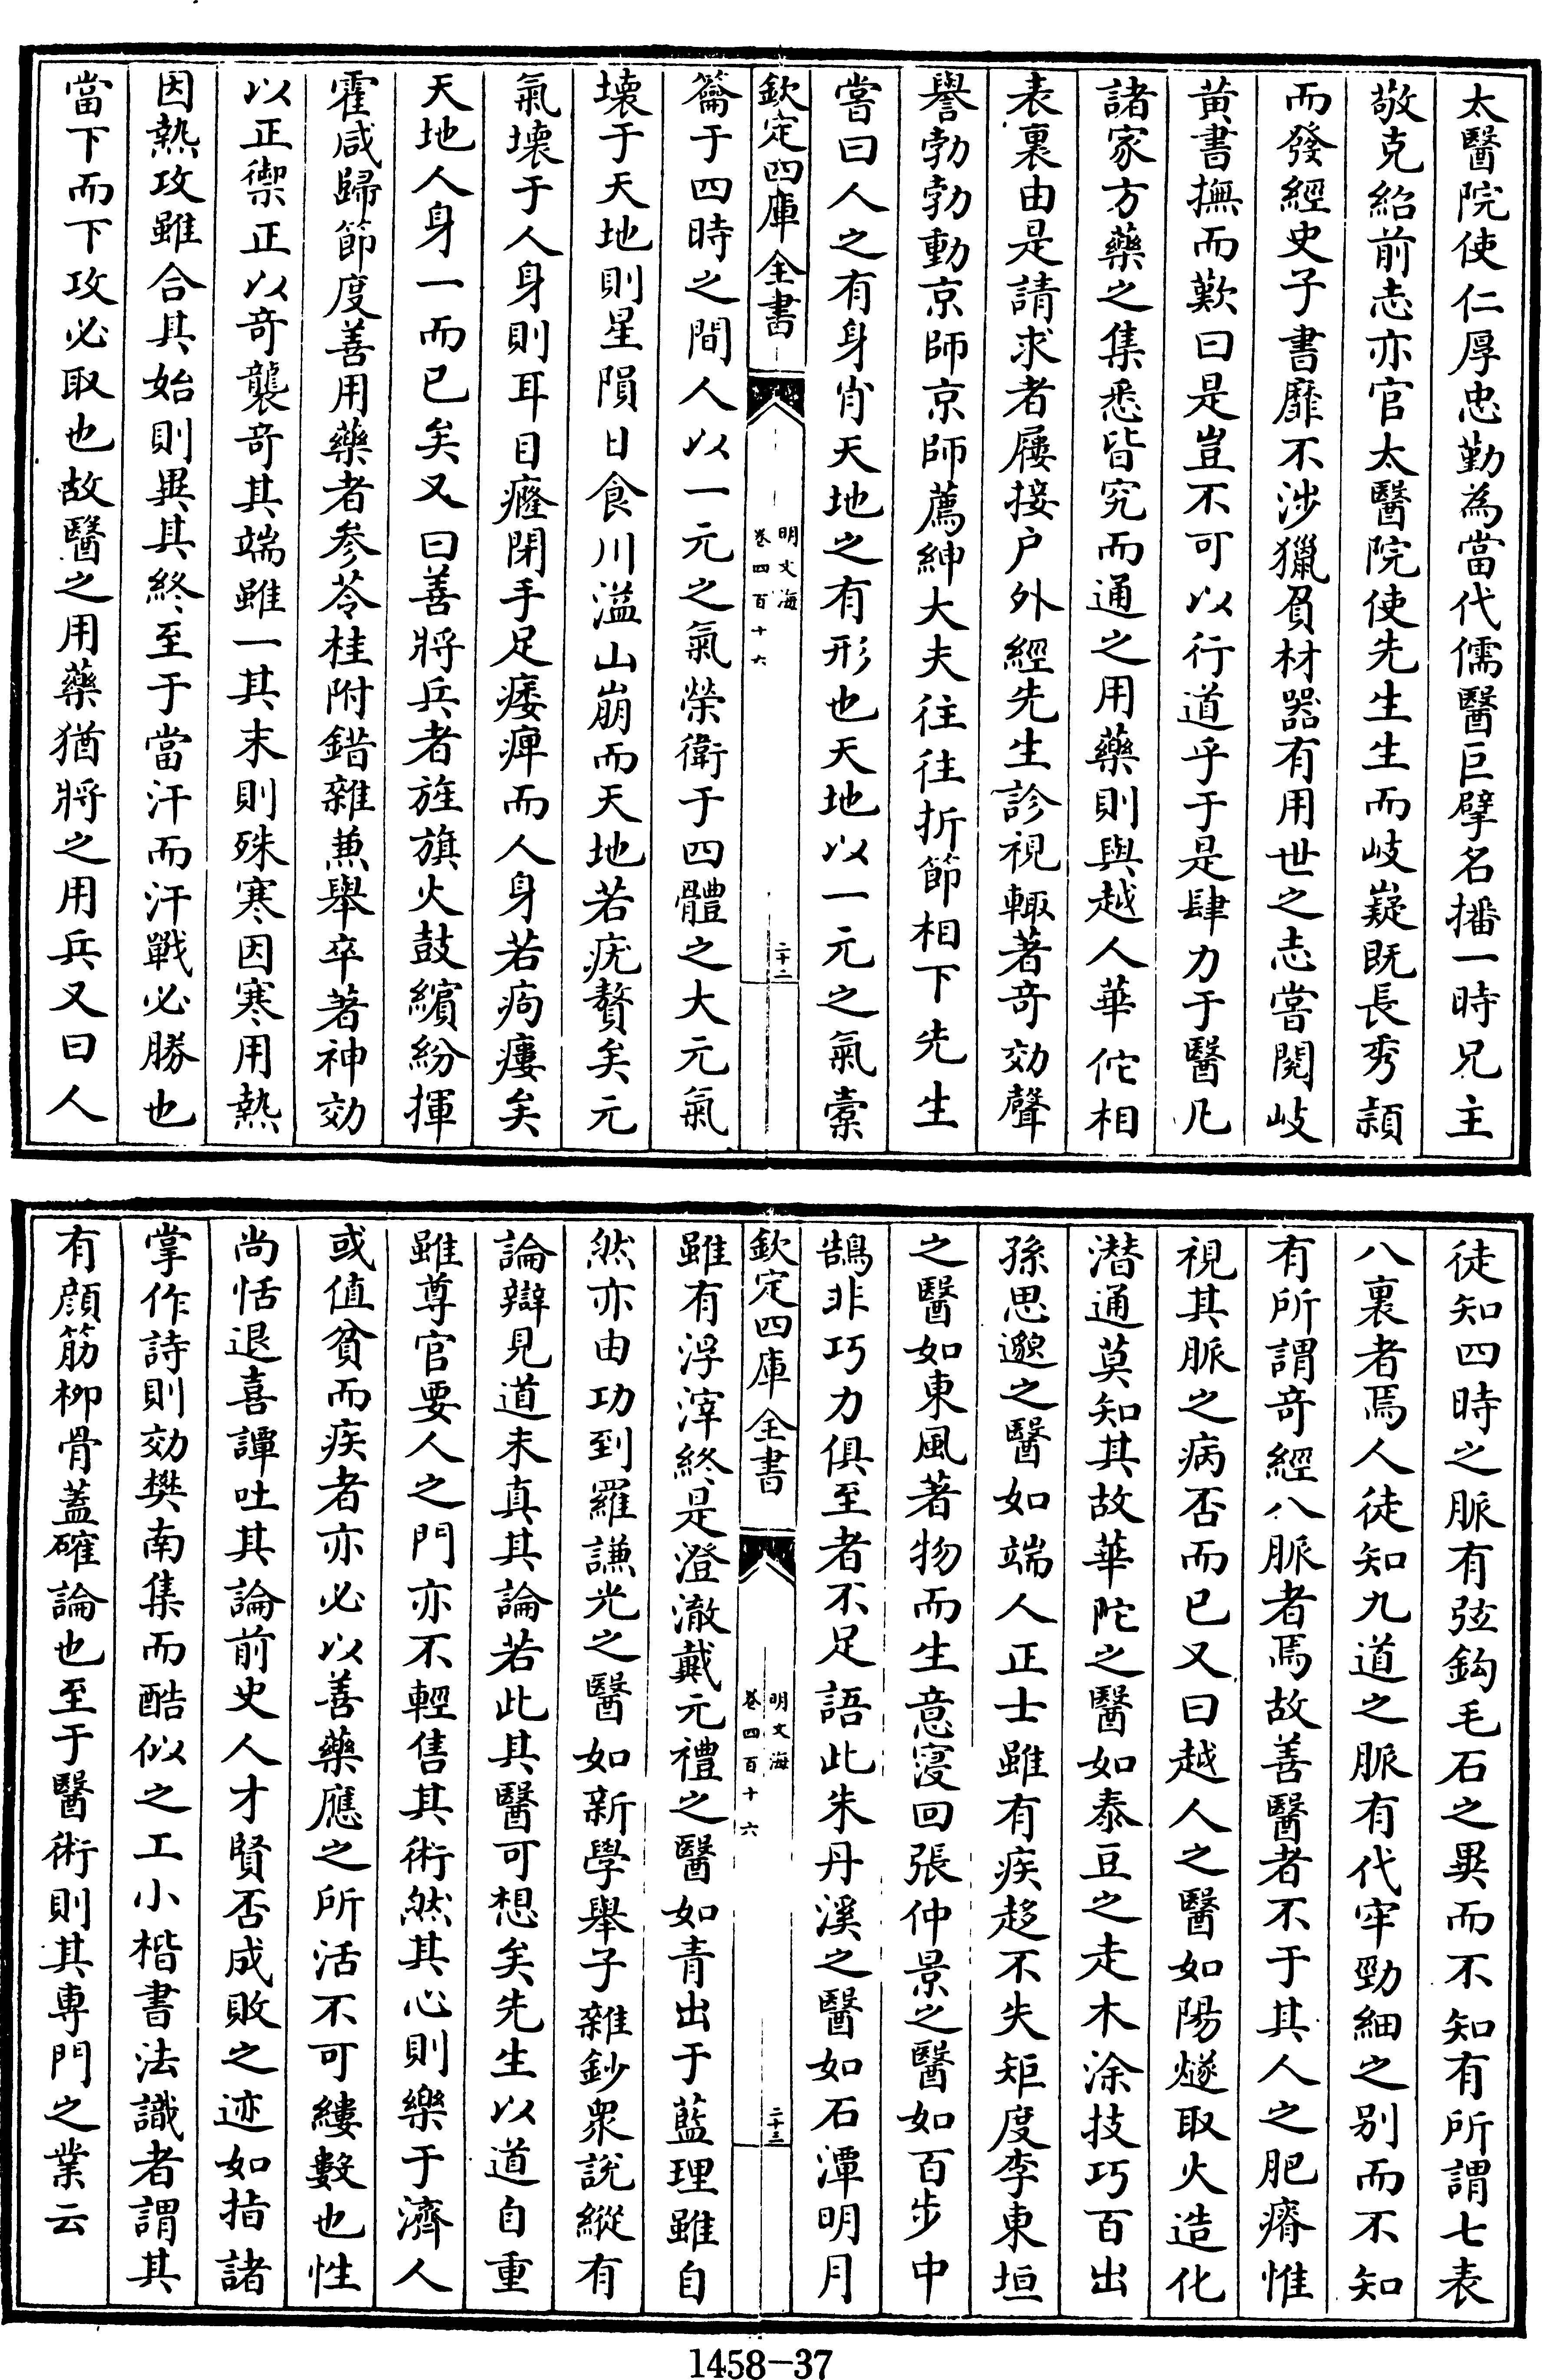 太醫院使仁厚忠勤為當代儒醫巨擘名播一時兄主
敬克紹前志亦官太醫院使先生生而岐嶷既長秀頴
而發經史子書靡不涉獵負材器有用世之志嘗閱岐
黄書撫而歎曰是豈不可以行道乎于是肆力于醫凡
諸家方藥之集悉皆究而通之用藥則與越人華佗相
表裏由是請求者屨接户外經先生診視輙著竒効聲
譽勃勃動京師京師薦紳大夫往往折節相下先生
嘗曰人之有身肖天地之有形也天地以一元之氣槖
欽定四庫全書
明文海
卷四百十六
二十二
籥于四時之間人以一元之氣榮衛于四體之大元氣
壊于天地則星隕日食川溢山崩而天地若疣贅矣元
氣壊于人身則耳目癃閉手足痿痺而人身若痀瘻矣
天地人身一而已矣又曰善將兵者旌旗火鼓繽紛揮
霍咸歸節度善用藥者参苓桂附錯雜兼舉卒著神効
以正禦正以竒襲竒其端雖一其末則殊寒因寒用熱
因熱攻雖合其始則異其終至于當汗而汗戰必勝也
當下而下攻必取也故醫之用藥猶將之用兵又曰人
徒知四時之脈有弦鈎毛石之異而不知有所謂七表
八裏者焉人徒知九道之脈有代牢勁細之别而不知
有所謂竒經八脈者焉故善醫者不于其人之肥瘠惟
視其脈之病否而已又曰越人之醫如陽燧取火造化
潜通莫知其故華陀之醫如泰豆之走木涂技巧百出
孫思邈之醫如端人正士雖有疾趍不失矩度李東垣
之醫如東風著物而生意寖回張仲景之醫如百步中
鵠非巧力俱至者不足語此朱丹溪之醫如石潭明月
欽定四庫全書
明文海
卷四百十六
二十三
雖有浮滓終是澄澈戴元禮之醫如青出于藍理雖自
然亦由功到羅謙光之醫如新學舉子雜鈔衆説縱有
論辯見道未真其論若此其醫可想矣先生以道自重
雖尊官要人之門亦不輕售其術然其心則樂于濟人
或值貧而疾者亦必以善藥應之所活不可縷數也性
尚恬退喜譚吐其論前史人才賢否成敗之迹如指諸
掌作詩則効樊南集而酷似之工小楷書法識者謂其
有顔筋柳骨蓋確論也至于醫術則其専門之業云
1458-37